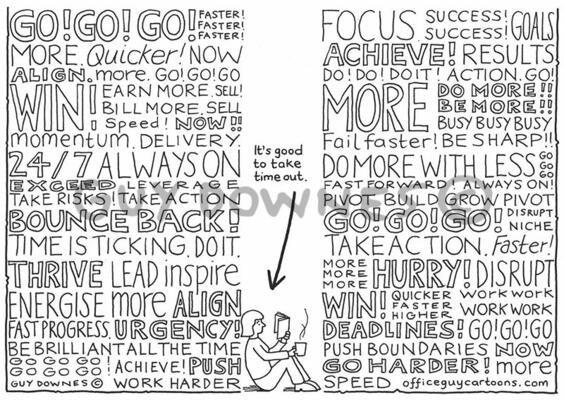 GO! GO! GO! FASTER!
FASTER!
FASTER!
MORE. Quicker! NOW
ALIGN. more. GO! GO! GO
WIN! EARN MORE. SELL!
BILL MORE. SELL
Speed! NOW!!
momentum. DELIVERY.
24/7 ALWAYS ON
EXCEED LEVERAGE
TAKE RISKS TAKE ACTION
BOUNCE BACK!
TIME IS TICKING. DO IT.
THRIVE LEAD inspire
ENERGISE more ALIGN
FAST PROGRESS. URGENCY!
BE BRILLIANT ALL THE TIME
GO GO GO GO
GO GO GO GO ! ACHIEVE! PUSH
GUY DOWNES © WORK HARDER
It's good
to take
time out.
FOCUS SUCCESS! GOALS
SUCCESS!
ACHIEVE! RESULTS
DO! DO! DO IT! ACTION. GO!
MORE DO MORE!!
BE MORE!!
BUSY BUSY BUSY
Fail faster! BE SHARP!!
DO MORE WITH LESS GO
GO
GO
FAST FORWARD! ALWAYS ON!
PLAN BUILD GROW PIVOT
GO! GO! GO! DISRUPT
NICHE
TAKE ACTION. Faster!
MORE
MORE
MORE HURRY! DISRUPT
WIN! QUICKER
FASTER
HIGHER WORK WORK
WORK WORK
DEADLINES! GO! GO! GO
PUSH BOUNDARIES NOW
GO HARDER! more
SPEED officeguycartoons.com
GUY DOWNES ©